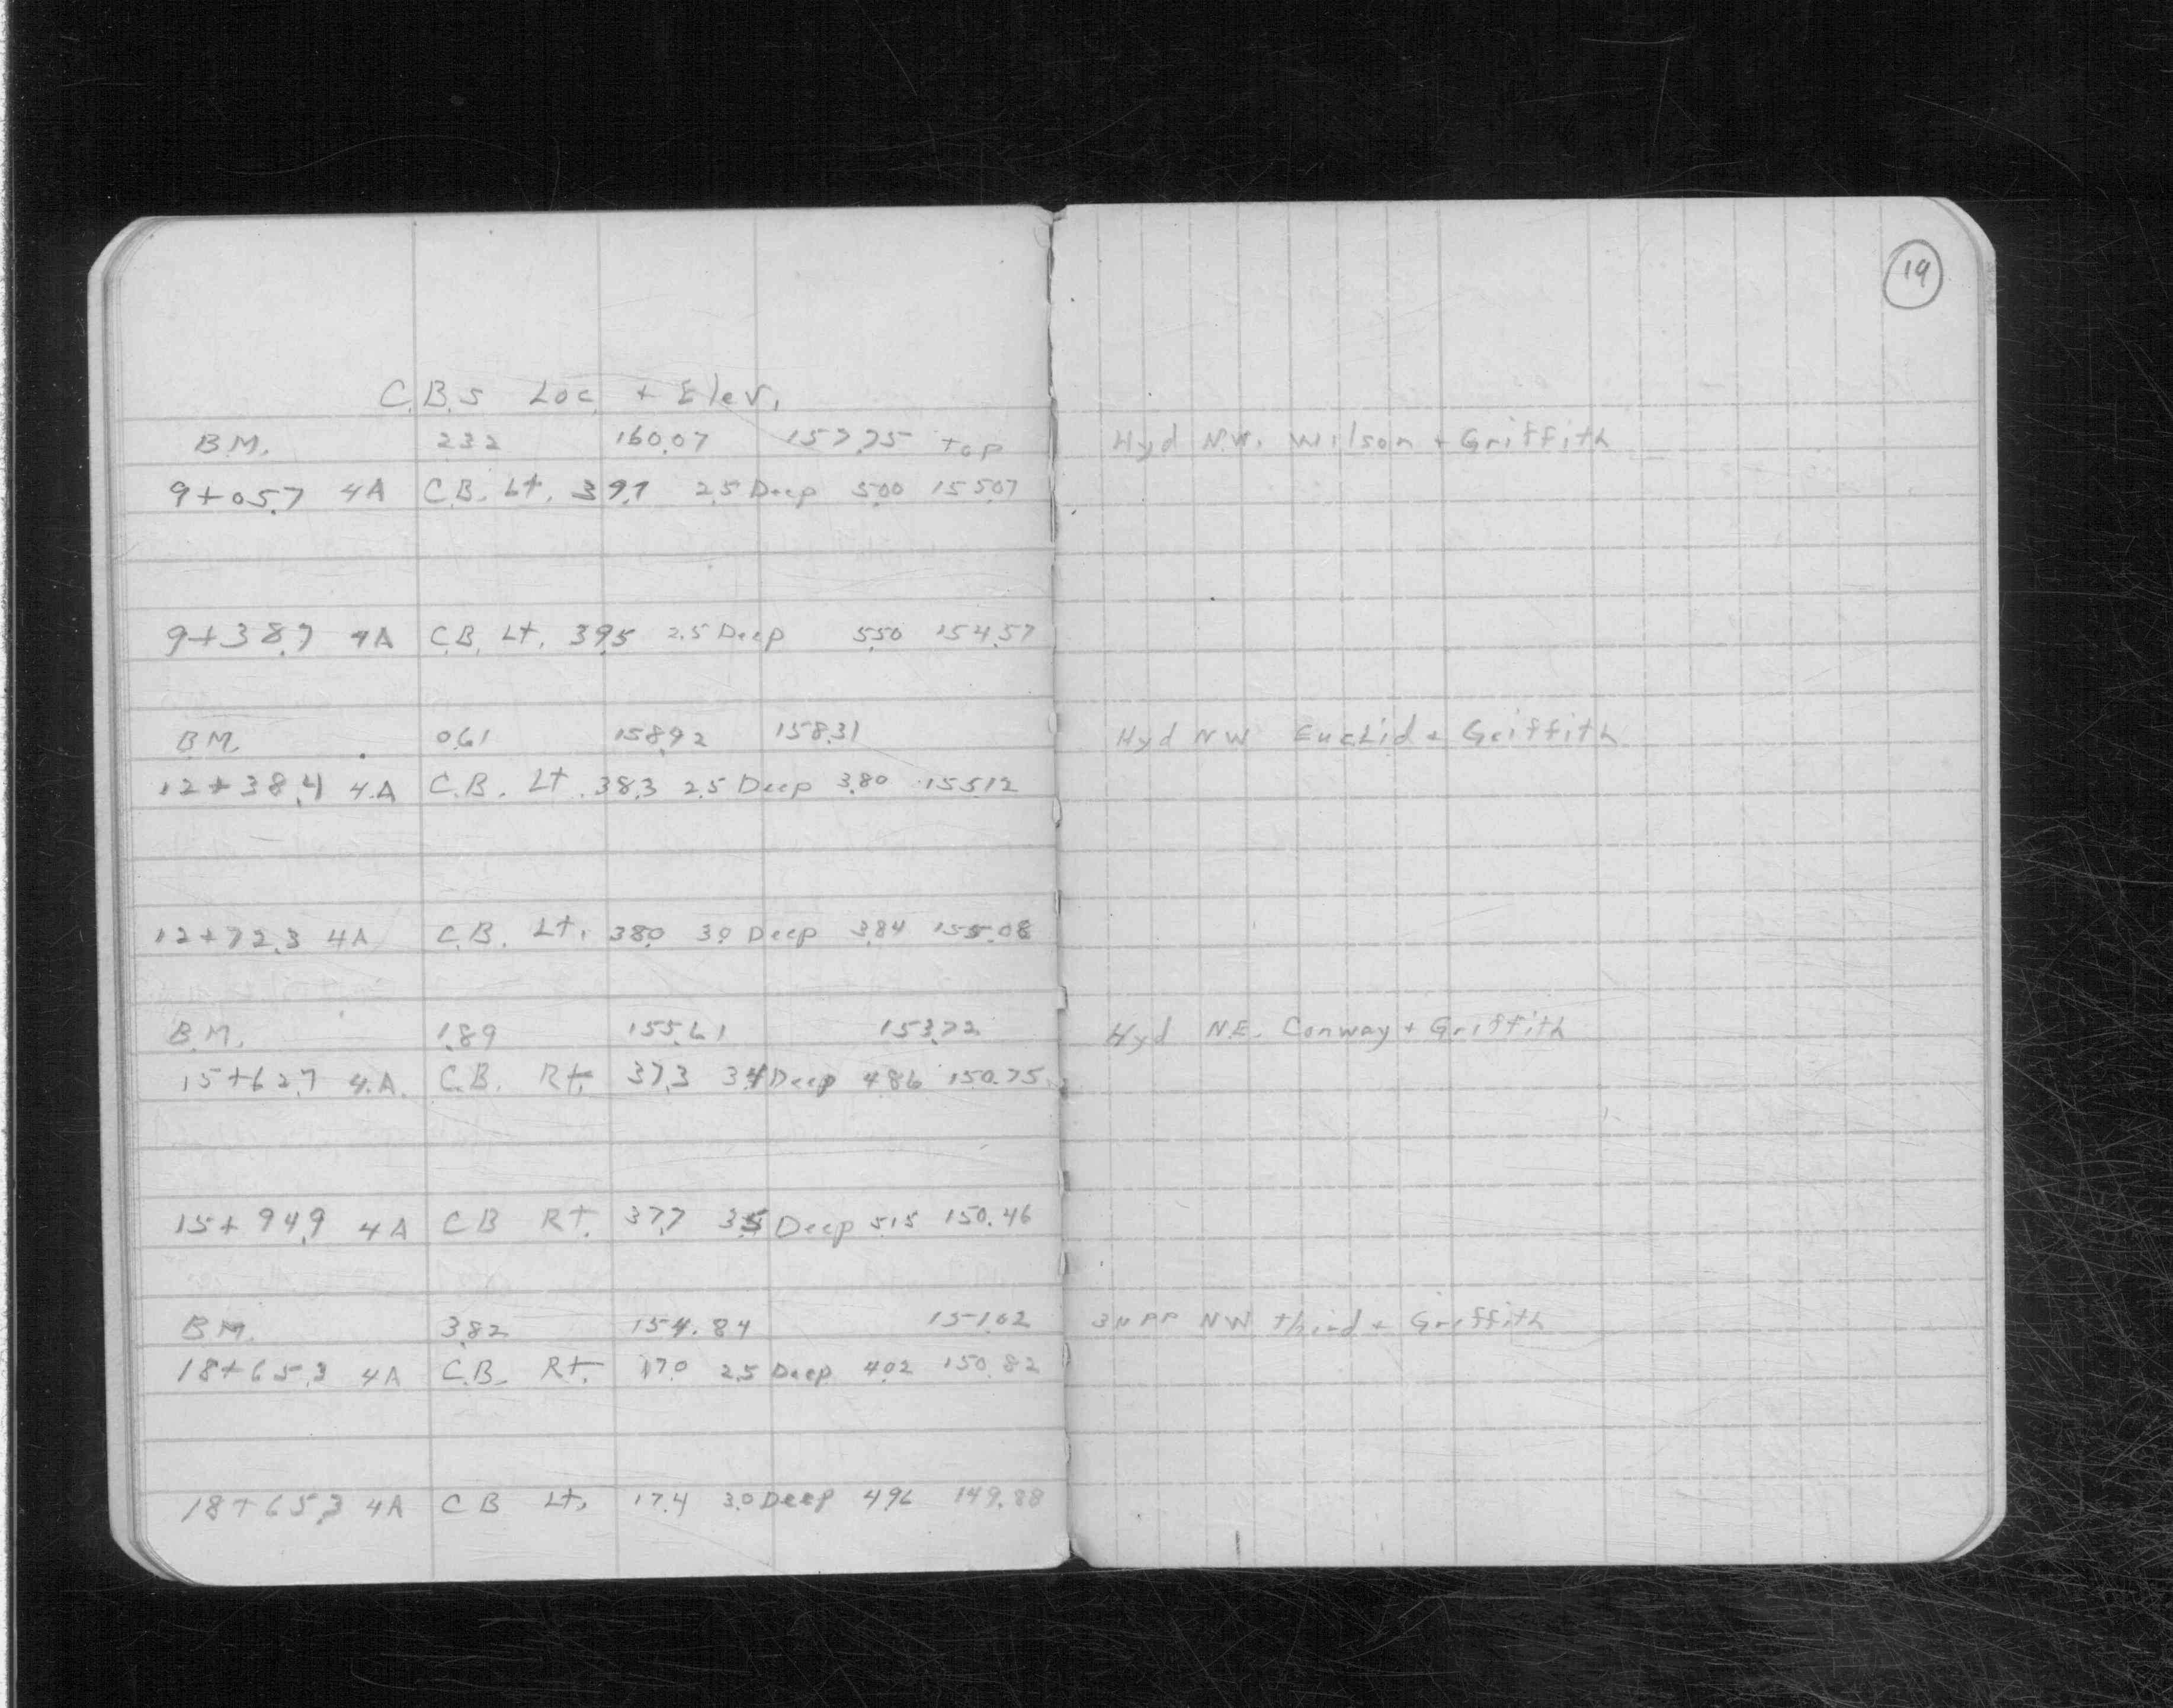 19
C.B.s Loc. + Elev.
B.M. 2.32 160.07 157.75 Top Hyd N.W. Wilson + Griffith
9+05.7 4A C.B. Lt. 39.7 2.5 Deep 5.00 155.07
9+38.7 4A C.B. Lt. 39.5 2.5 Deep 5.50 154.57
B.M. 0.61 158.92 158.31 Hyd NW Euclid + Griffith
12+38.4 4A C.B. Lt. 38.3 2.5 Deep 3.80 155.12
12+72.3 4A C.B. Lt. 38.0 3.0 Deep 3.84 155.08
B.M. 1.89 155.61 153.72 Hyd N.E. Conway + Griffith
15+62.7 4.A. C.B. Rt. 37.3 3.4 Deep 4.86 150.75
15+94.9 4A CB Rt. 37.7 3.5 Deep 5.15 150.46
B.M. 3.82 154.84 151.02 3N PP NW third + Griffith
18+65.3 4A C.B. Rt. 17.0 2.5 Deep 4.02 150.82
18+65.3 4A CB Lt. 17.4 3.0 Deep 4.96 149.88